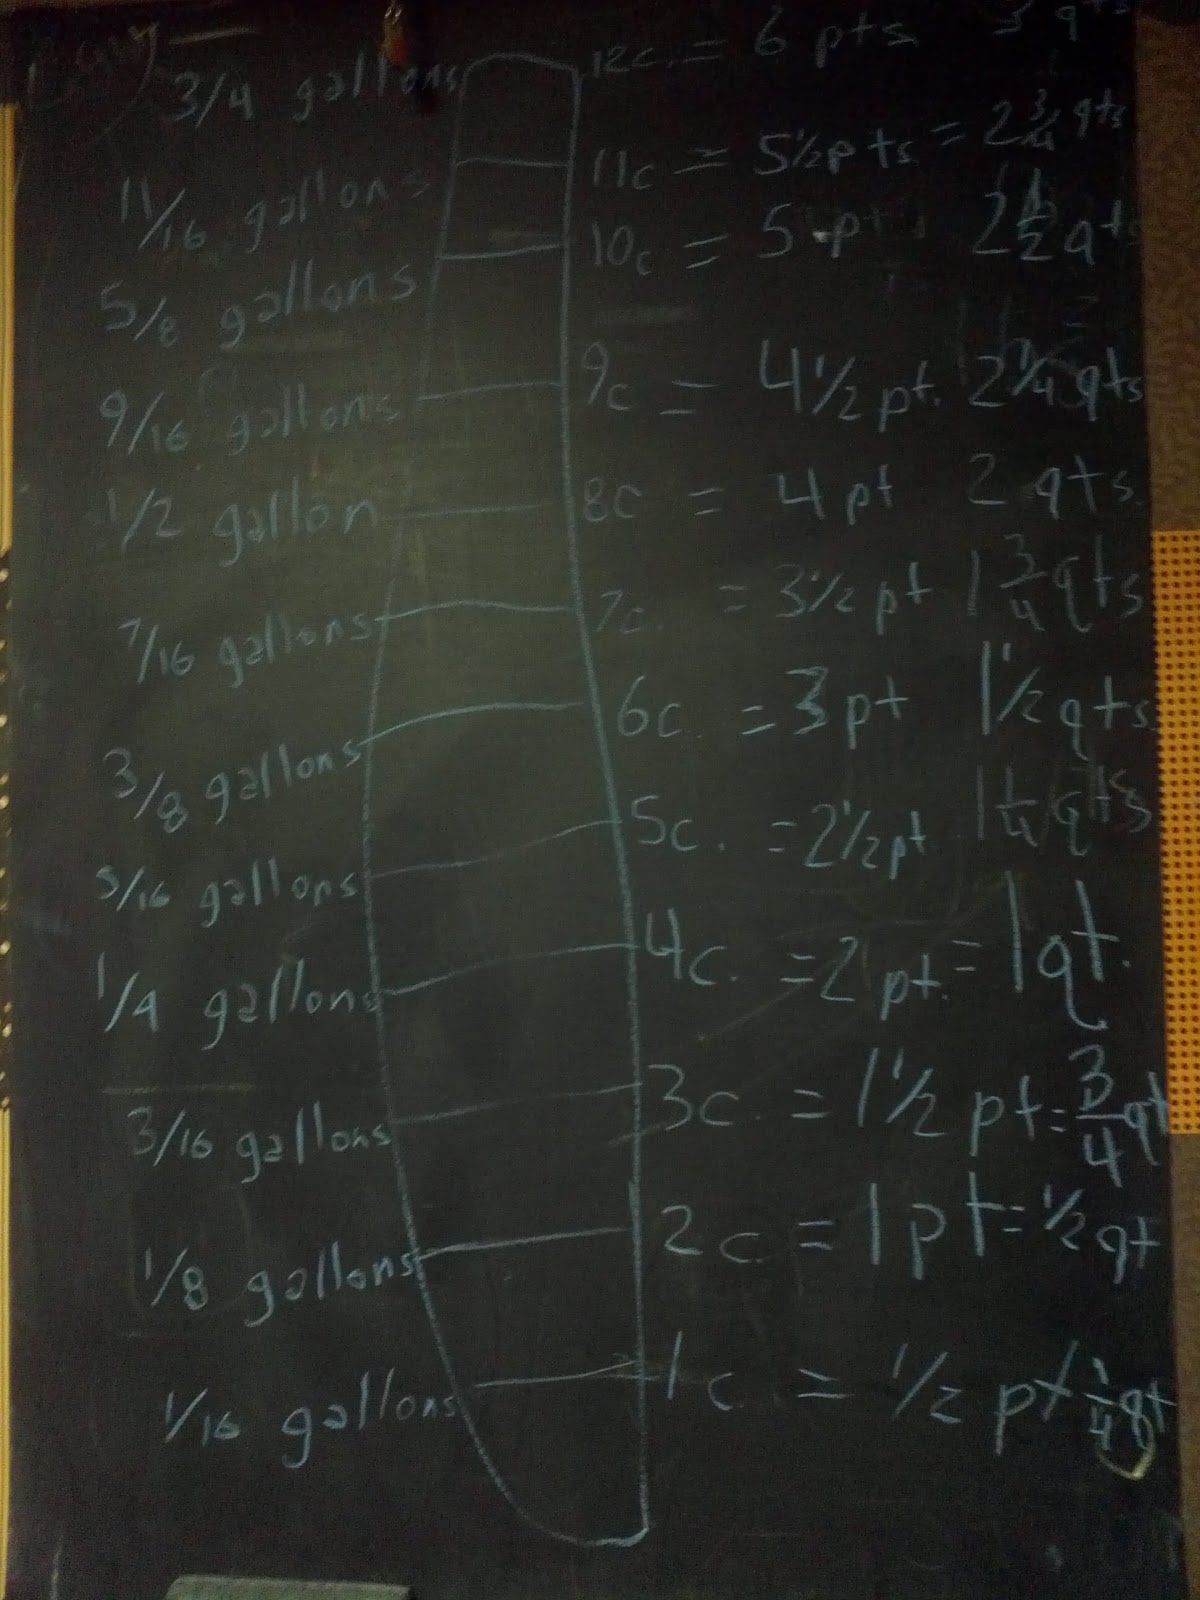 3/4 gallons 12c. = 6 pts 3 qts
11/16 gallons 11c = 5 1/2 pts = 2 3/4 qts
5/8 gallons 10c = 5 pt 2 1/2 qts
9/16 gallons 9c = 4 1/2 pt. 2 1/4 qts
1/2 gallon 8c = 4 pt 2 qts
7/16 gallons 7c. = 3 1/2 pt 1 3/4 qts
3/8 gallons 6c. = 3 pt 1 1/2 qts
5/16 gallons 5c. = 2 1/2 pt 1 1/4 qts
1/4 gallons 4c. = 2 pt. = 1 qt.
3/16 gallons 3c. = 1 1/2 pt = 3/4 qt
1/8 gallons 2c. = 1 pt = 1/2 qt
1/16 gallons 1c. = 1/2 pt 1/4 qt